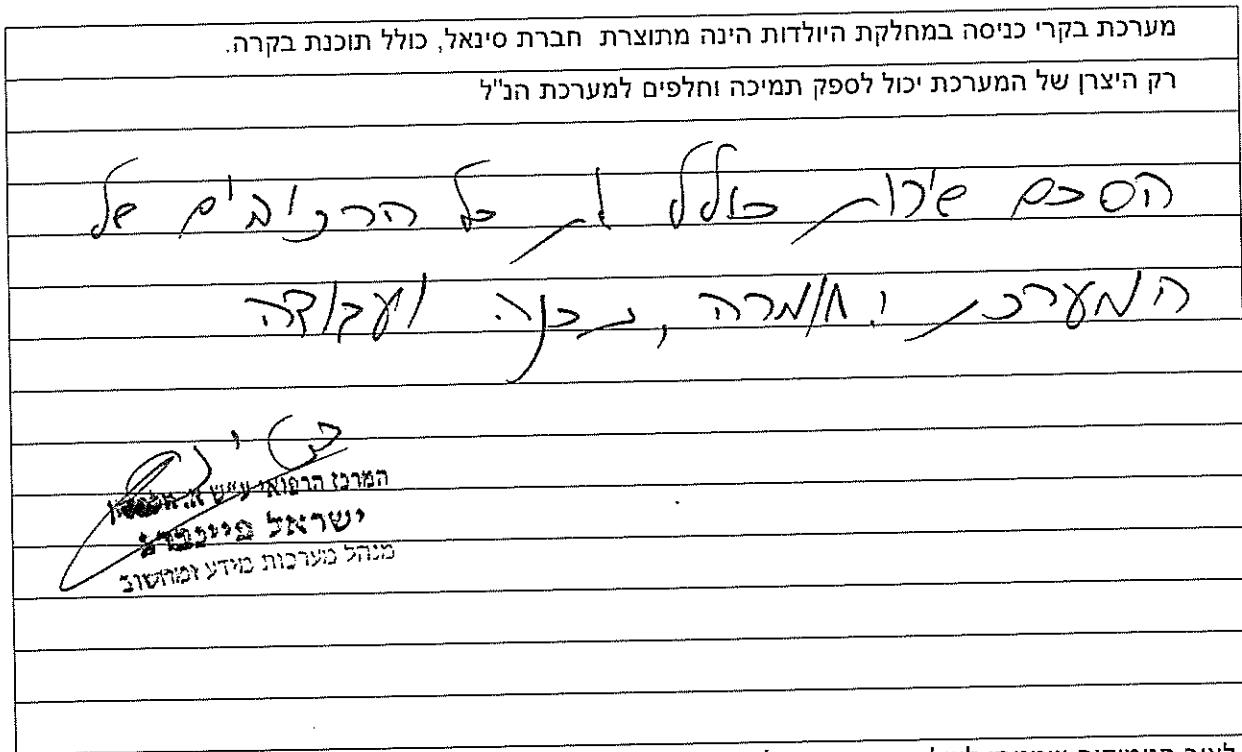 מערכת בקרי כניסה במחלקת היולדות הינה מתוצרת חברת סינאל, כולל תוכנת בקרה.
רק היצרן של המערכת יכול לספק תמיכה וחלפים למערכת הנ"ל
הסכם שירות כולל את כל הרכיבים של
המערכת, חומרה, תכנה ועבודה
המרכז הרפואי ע"ש א.
ישראל פיינברג
מנהל מערכות מידע ומחשוב